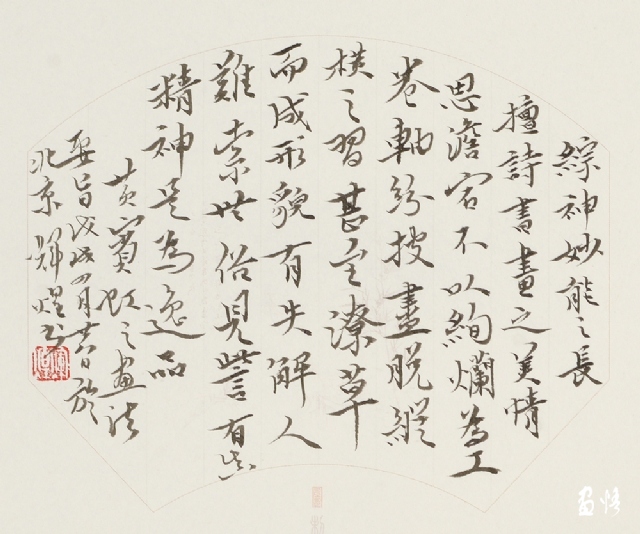 綜神妙能之長
擅詩書畫之美情
思澹宕不以絢爛為工
卷軸紛披盡脫縱
橫之習甚至潦草
而成形貌有失解人
難索世俗見訾有真
精神是為逸品
黃賓虹之畫法
要旨戊戌四月吉日於
北京輝煜书